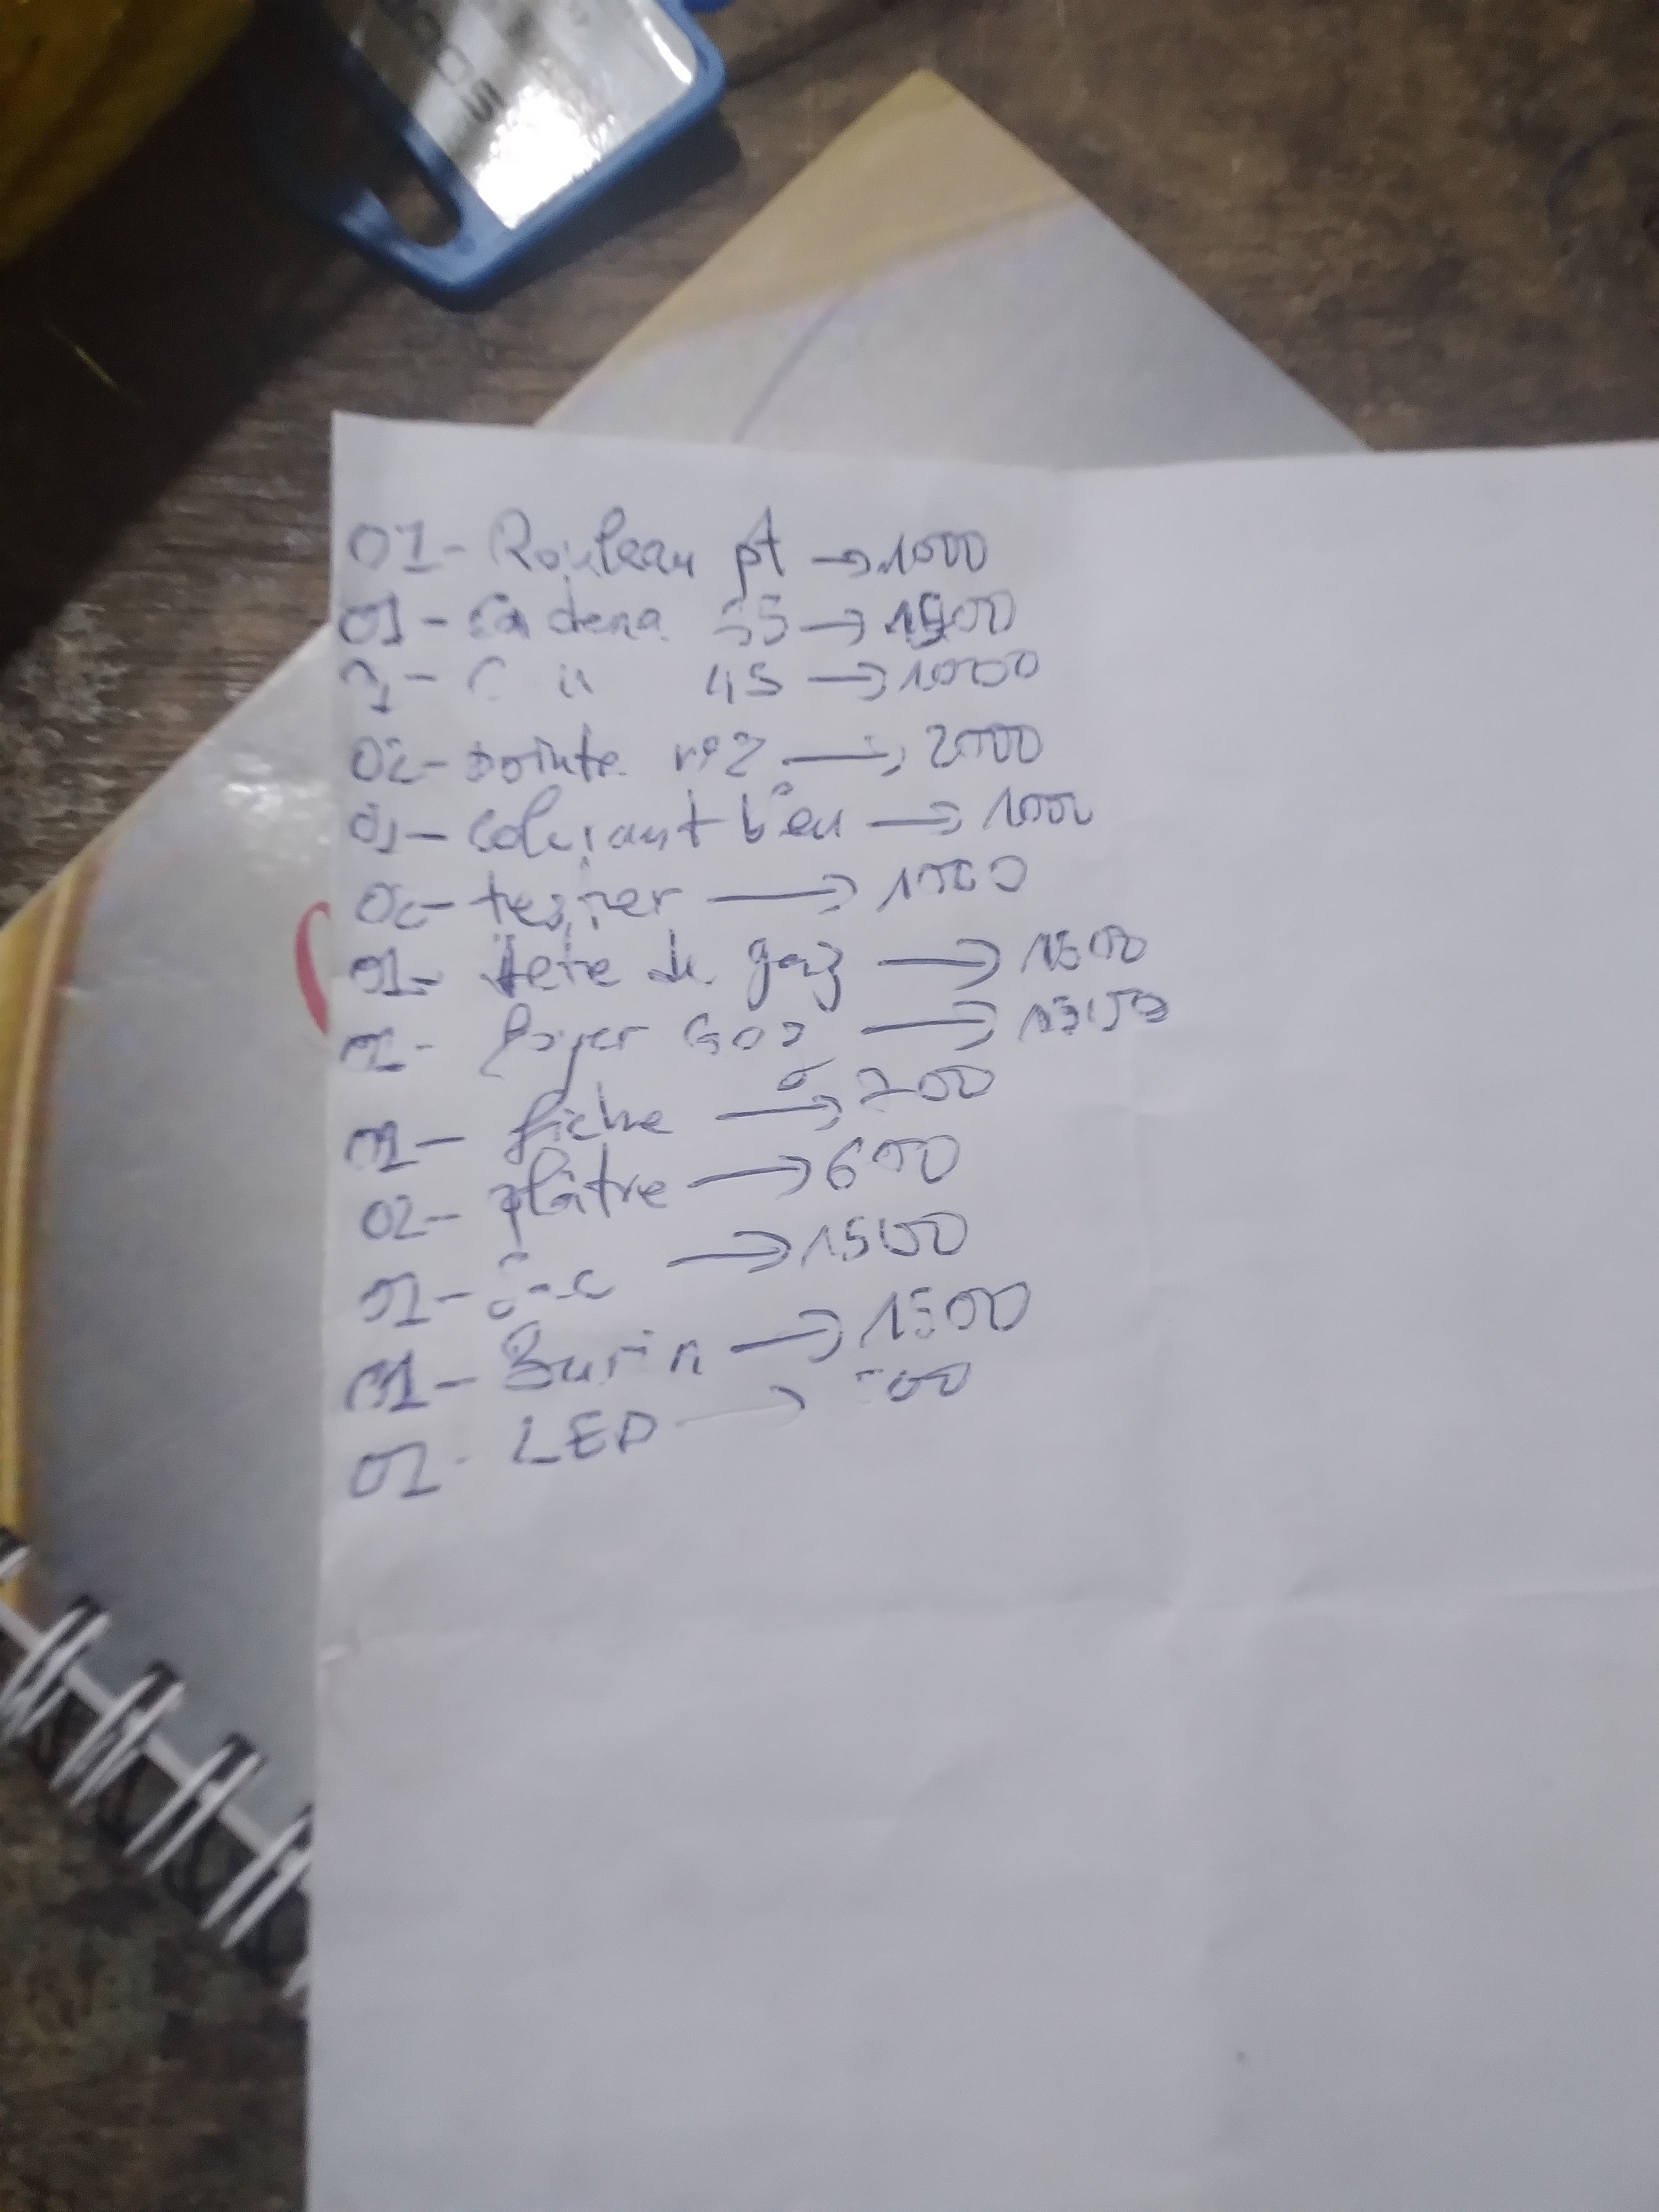 01- Rouleau pt → 1000
01- Cadena 55 → 1500
01- C " 45 → 1000
02- pointe n°2 → 2000
01- Colorant bleu → 1000
→ 1000
01- tete de gaz → 1500
01- →
01- fiche → 200
02- plâtre → 600
01- → 1500
01- Burin → 1500
LED →